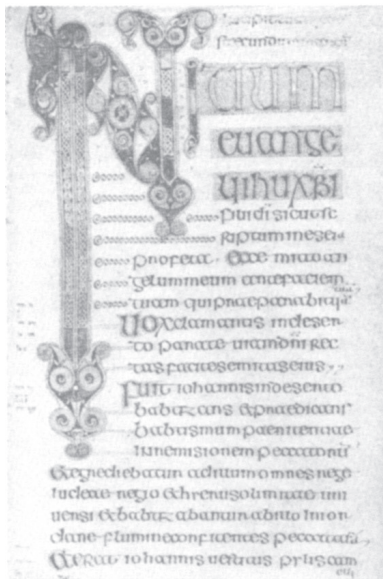 secundum
INitium
euange
lii ihu xpi
di sicut sc
riptum in
profeta Ecce mitto an
gelum meum ante faciem
tuam qui praeparabit
Uox clamantis in deser
to parate uiam dni rec
tas facite semitas eius
Fuit iohannis in deserto
babtizans et praedicans
babtismum paenitentiae
in remisionem peccatorum
Et egrediebatur ad illum omnes
iudeae regio et
uersi et babtizabantur ab illo in ior
dane flumine confitentes peccata sua
Et erat iohannis uestitus pilis cam
eli